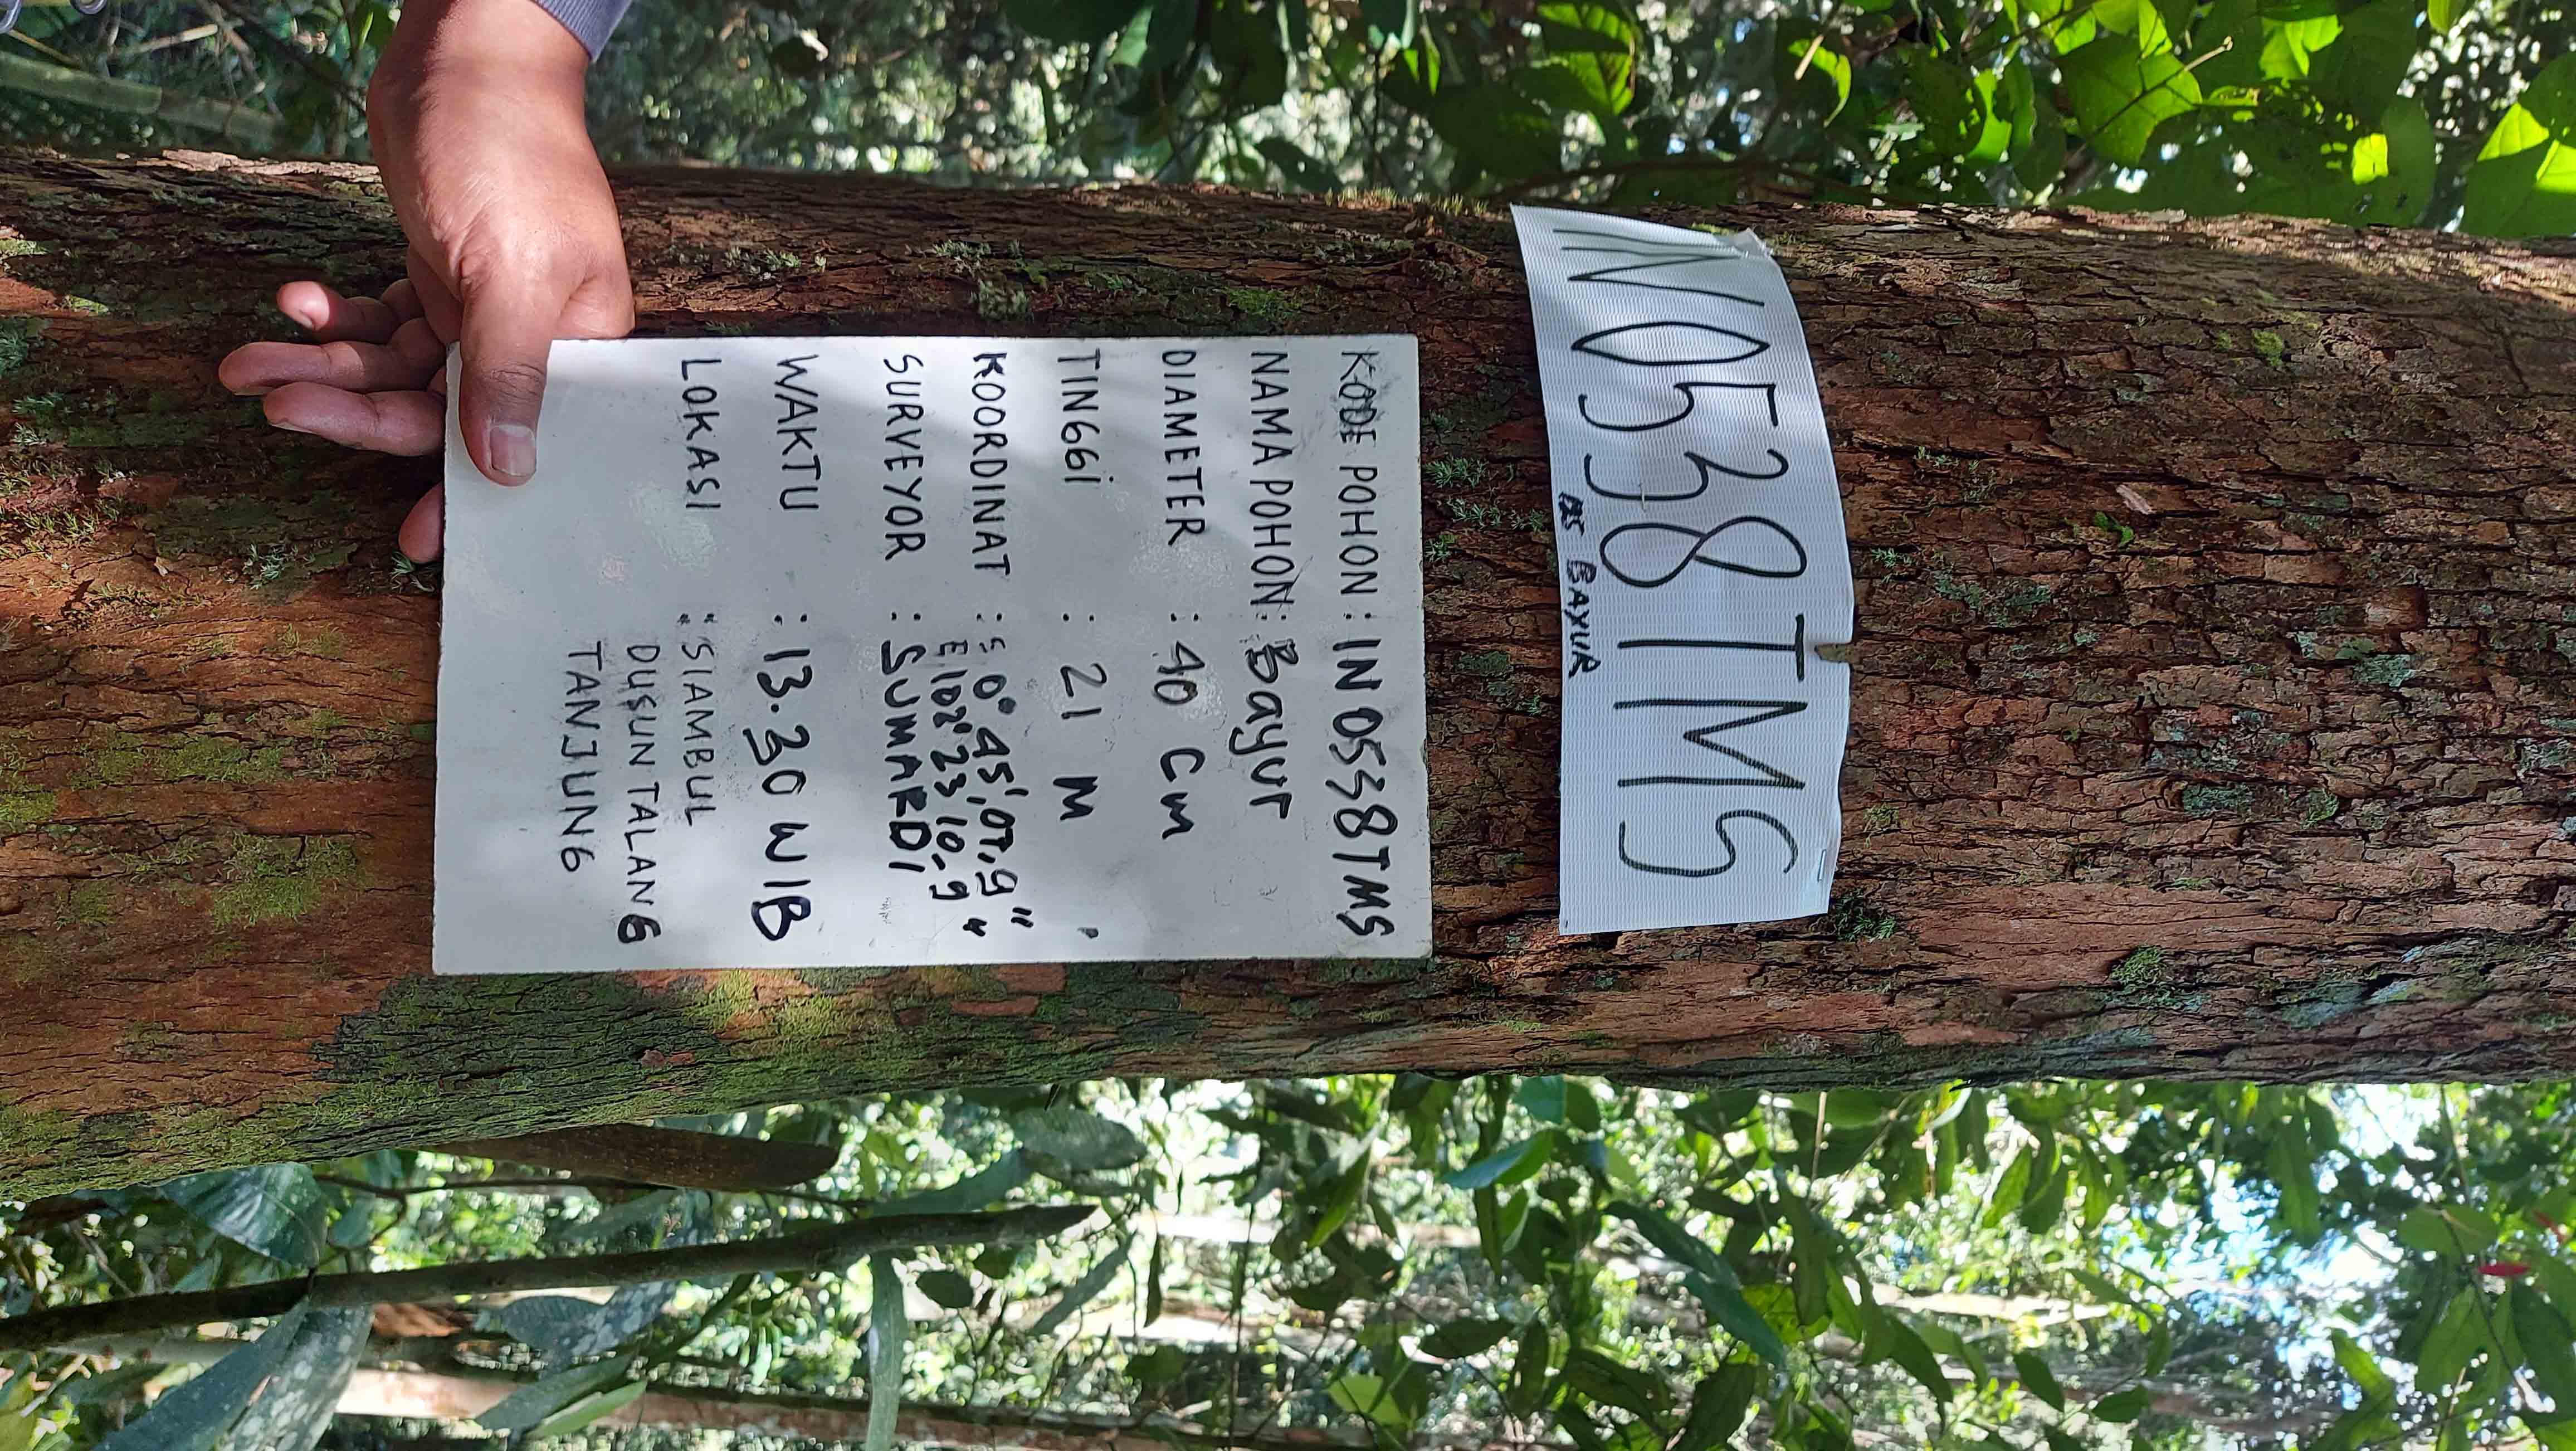 IN0538TMS
BAYUR
KODE POHON : IN0538TMS
NAMA POHON : Bayur
DIAMETER : 40 Cm
TINGGi : 21 M
KOORDINAT : S 0° 45', 07,9"
E 102° 23 10,9"
SURVEYOR : SUMARDI
WAKTU : 13.30 WIB
LOKASI : SIAMBUL
DUSUN TALANG
TANJUNG